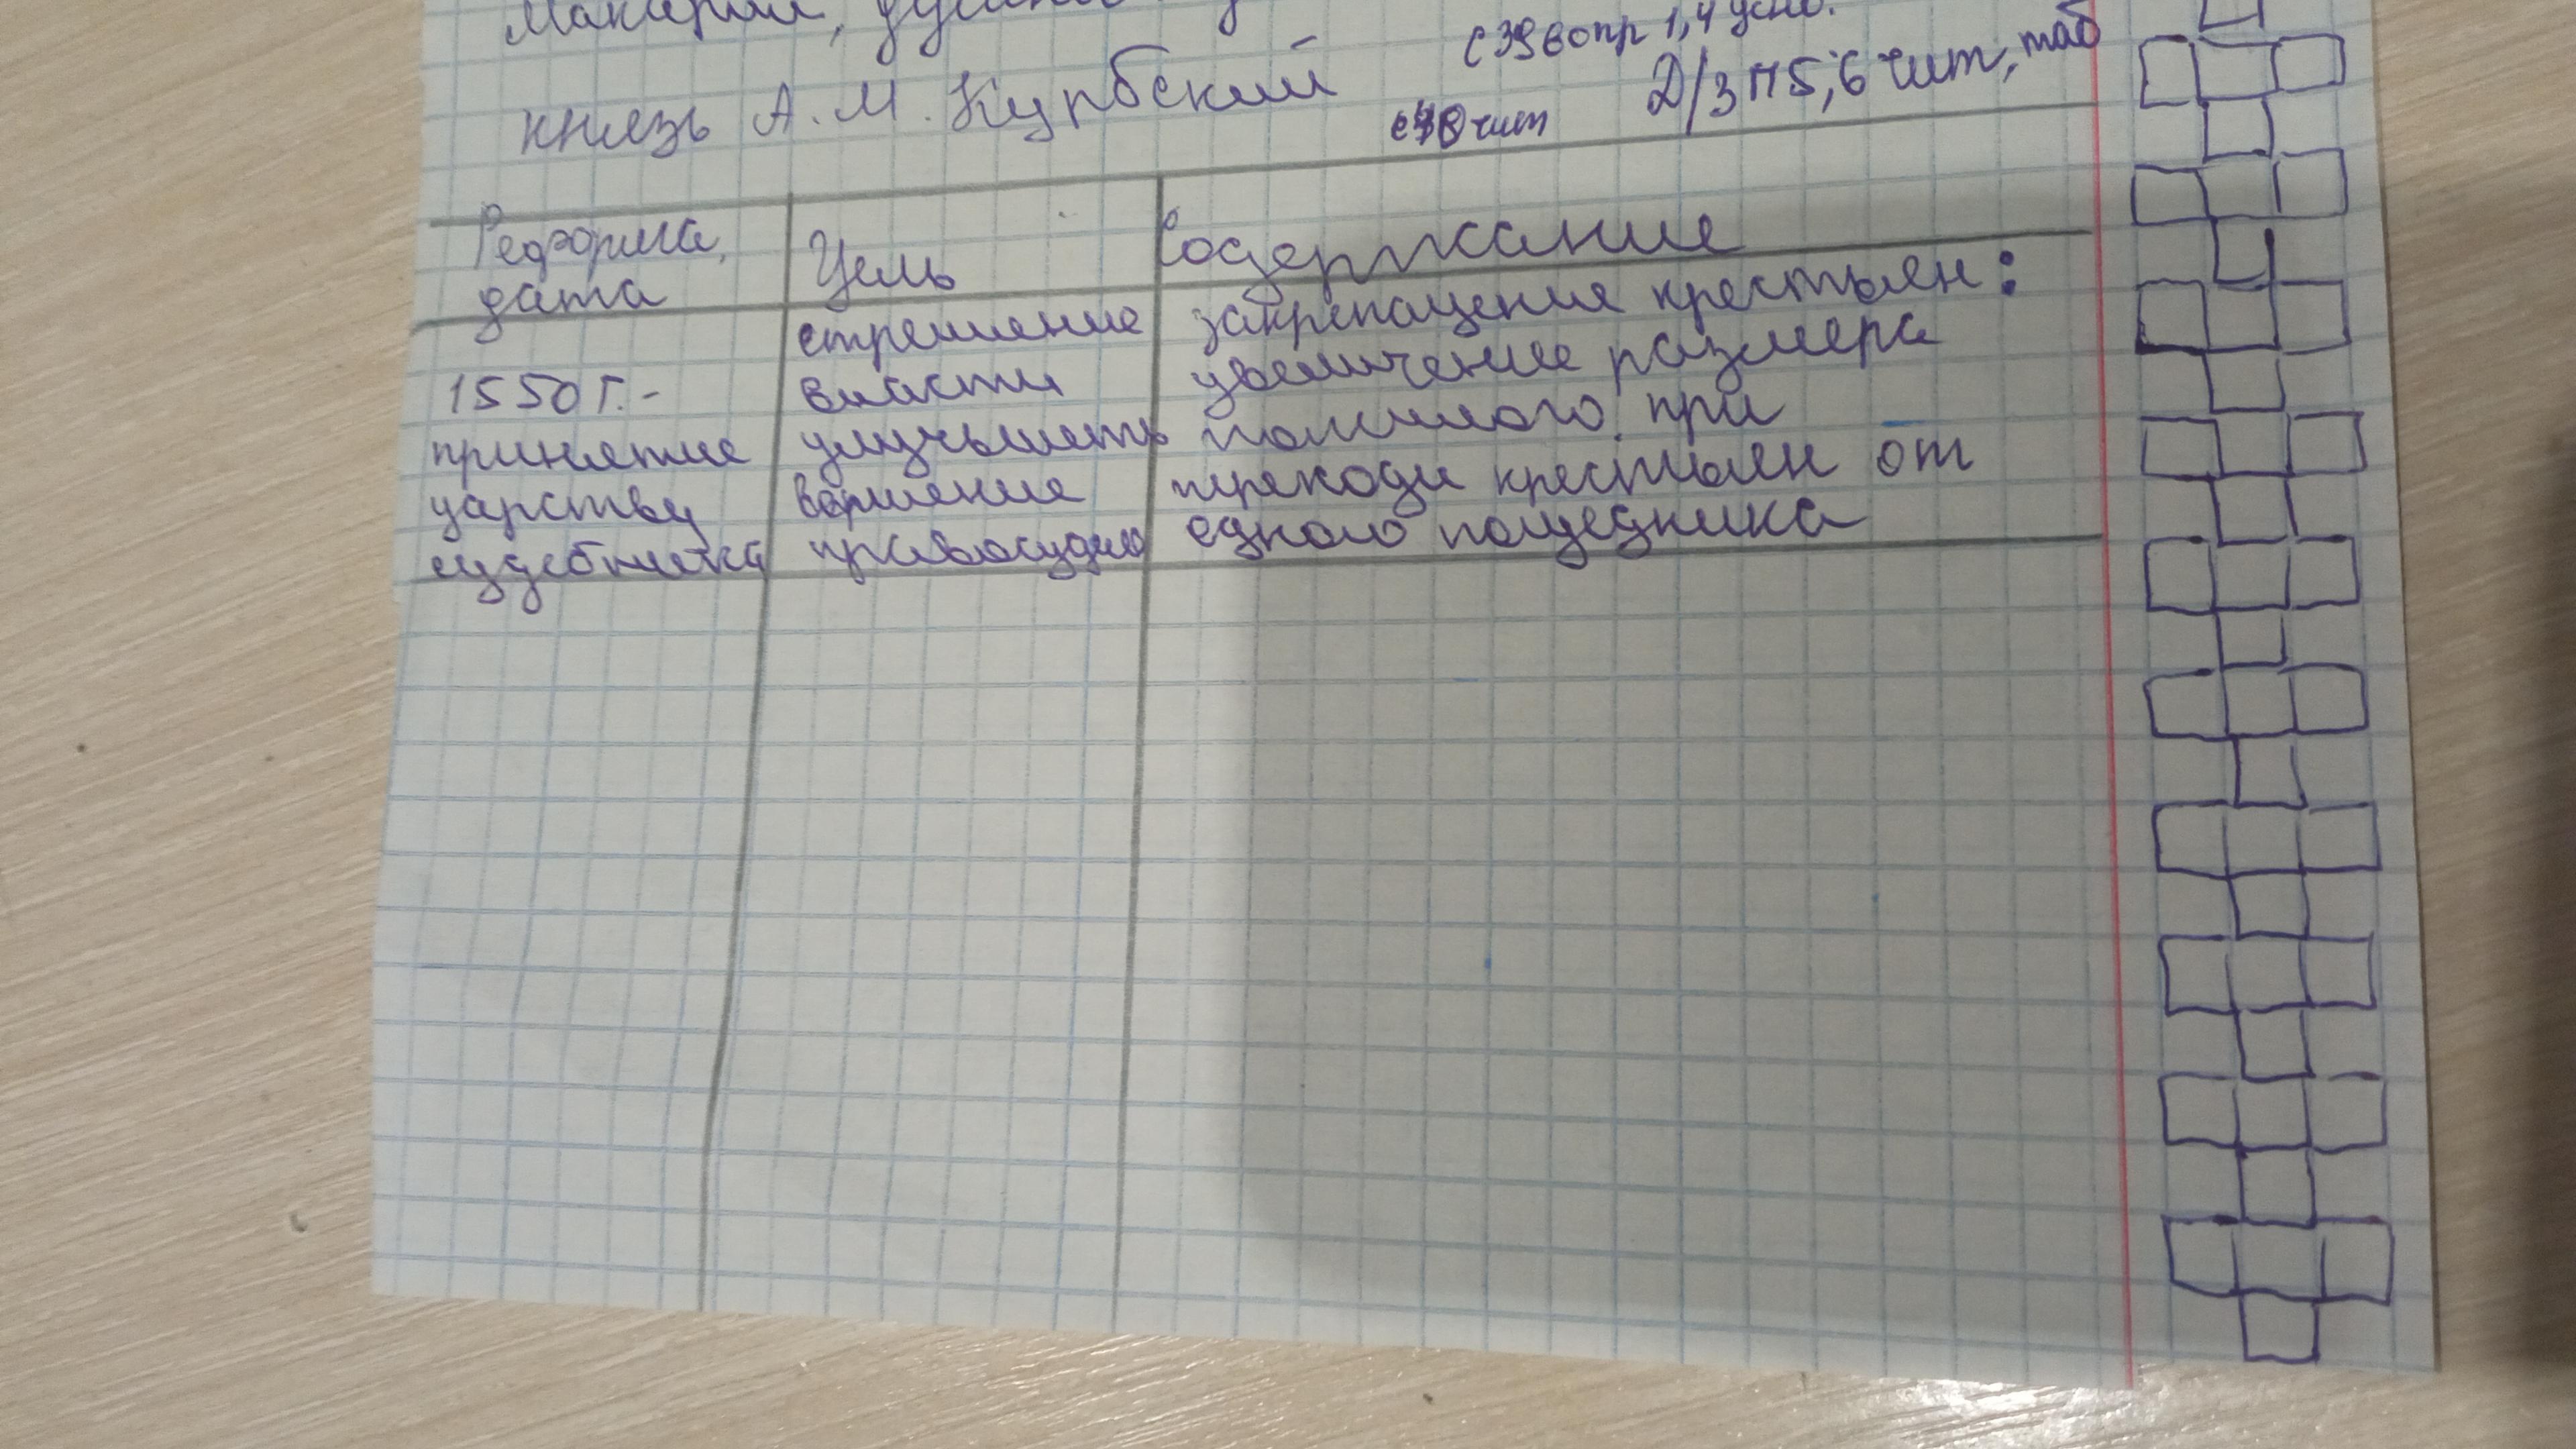 Макарий,
с 39 вопр 1,4 устно.
князь А.М. Курбский
с 38 чит
Д/З П5,6 чит, таб
Реформа,
дата
Цель
Содержание
1550 г. -
принятие
царству
судебника
стремление
власти
улучьшить
вершение
правосудия
закрепощение крестьян:
увеличение размера
пожилого при
переходи крестьян от
одного помещедника